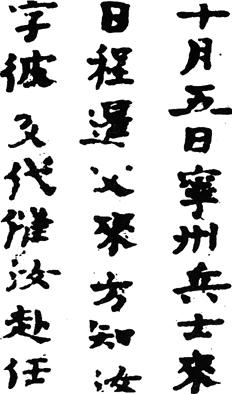 十月五日寧州兵士來
日程暹父來方知汝
字彼交代催汝赴任